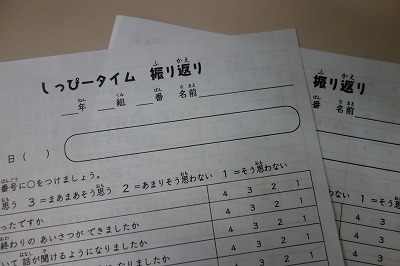 しっぴータイム 振り返り
年 組 番 名前
日( )
番号に○をつけましょう。
思う 3=まあまあそう思う 2=あまりそう思わない 1=そう思わない
ったですか 4 3 2 1
終わりの あいさつが できましたか 4 3 2 1
いて 話が聞けるようになりましたか 4 3 2 1
になりましたか 4 3 2 1
振り返り
番 名前
1=そう思わない
4 3 2 1
4 3 2 1
4 3 2 1